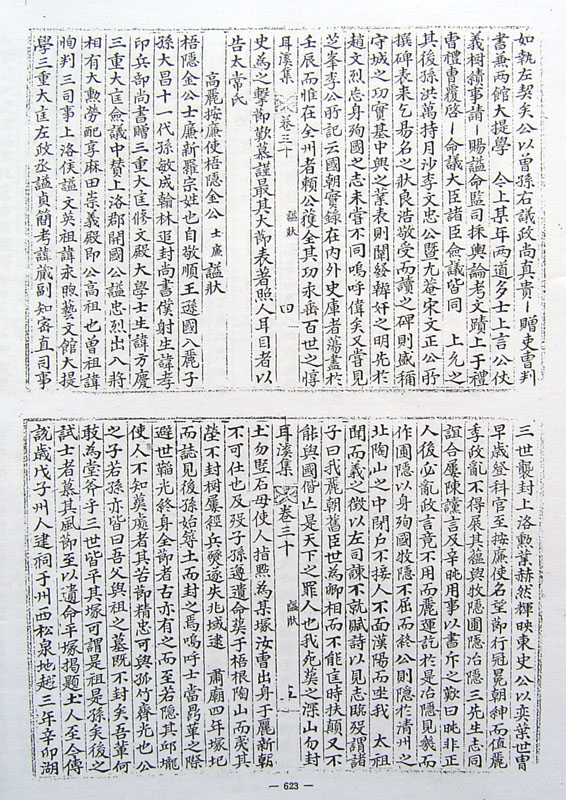 如執左契矣公以曾孫右議政尚真貴ㅣ贈吏曹判
書兼兩館大提學 今上某年兩道多士上言公伏
義樹績事請ㅣ賜諡命監司採輿論考文蹟上于禮
曹禮曹覆啓ㅣ命議大臣諸臣僉議皆同 上允之
其後孫洪萬持月沙李文忠公曁尤菴宋文正公所
撰碑表來乞易名之狀良浩敬受而讀之碑則盛稱
守城之功實基中興之業表則闡終斡奸之明先於
趙文烈忠身殉國之志未嘗不同嗚呼偉矣又嘗見
芝峯李公所記云國朝實錄在內外史庫者蕩盡於
壬辰而惟在全州者賴公獲全其功永垂百世之惇
耳溪集 卷三十 諡狀 四
史焉之擊節歎慕謹最其大節表著照人耳目者以
告太常氏
高麗按廉使梧隱金公士廉諡狀
梧隱金公士廉新羅宗姓也自敬順王遜國八麗子
孫大昌十一代孫敏成翰林追封尚書僕射生諱孝
印兵部尚書贈三重大匡修文殿大學士生諱方慶
三重大匡僉議中贊上洛郡開國公諡忠烈出八將
相有大勲勞配享麻田崇義殿即公高祖也曾祖諱
恂判三司事上洛侯諡文英祖諱永煦藝文館大提
學三重大匡左政丞諡貞簡考諱蕆副知密直司事
三世襲封上洛勳業赫然輝映東史公以奕葉世胄
早歲登科官至按廉使名望節行冠冕朝紳而值麗
季政亂不得展其蘊與牧隱圃隱冶隱三先生志同
誼合屢陳讜言及辛旽用事以書斥之歎曰旽非正
人後必亂政言竟不用而麗運訖於是冶隱見幾而
作圃隱以身殉國牧隱不屈而終公則隱於清州之
北陶山之中閉戶不接人不面漢陽而坐我 太祖
聞而義之徵以左司諫不就賦詩以見志臨歿謂諸
子曰我麗朝舊臣世為卿相而不能匡時扶顛又不
能與國偕亡是天下之罪人也我死葬之深山勿封
耳溪集 卷三十 諡狀 五
土勿竪石毋使人指點為某塚汝曹出身于麗新朝
不可仕也及歿子孫遵遺命葬于梧根陶山而夷其
塋不封樹屢經兵燹遂失兆域逮 肅廟四年塚圮
而誌見後孫始簣土而封之焉嗚呼士當鼎革之際
遯世韜光終身全節者古亦有之而至若隱其邱壠
使人不知葬處者其苦節精忠可與孤竹齊光也公
之子若孫亦皆曰吾父與祖之墓既不封矣吾輩何
敢為堂斧乎三世皆平其塚可謂是祖是孫矣後之
試士者慕其風節至以遺命平塚揭題士人至今傳
說歲戊子州人建祠于州西松泉地越三年辛卯湖
— 623 —